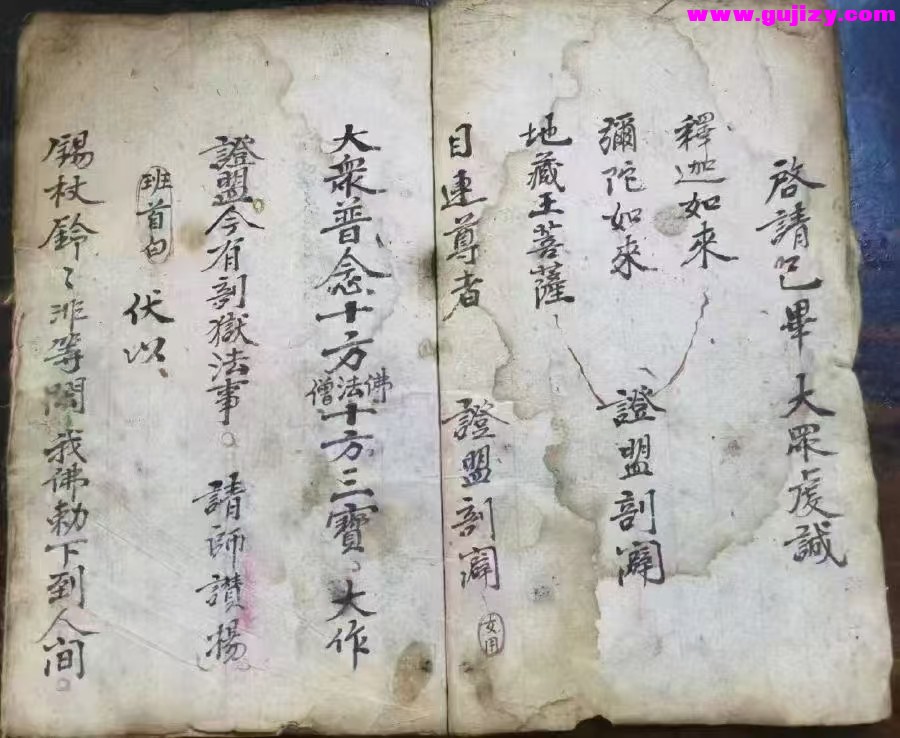 www.gujizy.com
啓請已畢 大眾虔誠
釋迦如來
彌陀如來
地藏王菩薩
證盟剖㵎
目連尊者 證盟剖㵎 女用
大衆普念十方佛法僧十方三寶、大作
證盟今有剖獄法事。請師讚揚
班首白 伏以
錫杖鈴〻非等閑我佛勅下到人间。